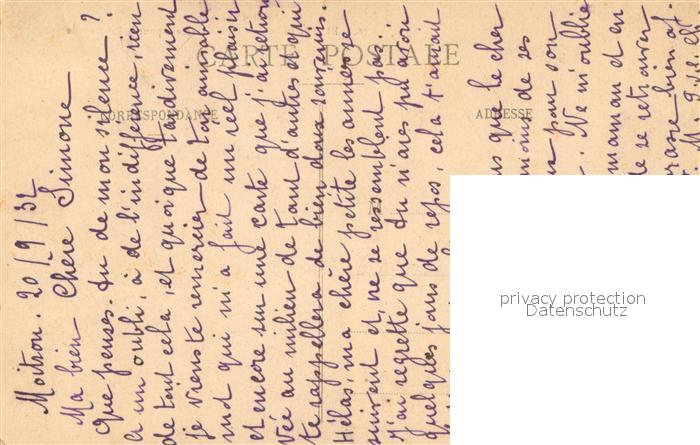 CARTE POSTALE
CORRESPONDANCE
ADRESSE
Moitron. 20/9/32
Ma bien Chère Simone
Que penses-tu de mon silence ?
à un oubli, à de l'indifférence, rien
de tout cela, et quoique tardivement
je viens te remercier de ton aimable
mot qui m'a fait un réel plaisir
et encore sur une carte que j'ai
vée au milieu de tant d'autres et qui
te rappellera de bien doux souvenirs.
Hélas, ma chère petite les années se
suivent et ne se ressemblent pas.
J'ai regrette que tu n'aies pu avoir
quelques jours de repos, cela t'aurait
que le cher
moine de ses
pour son
. Ne m'oublie
maman et en
de se retrouver
bien af-
privacy protection
Datenschutz